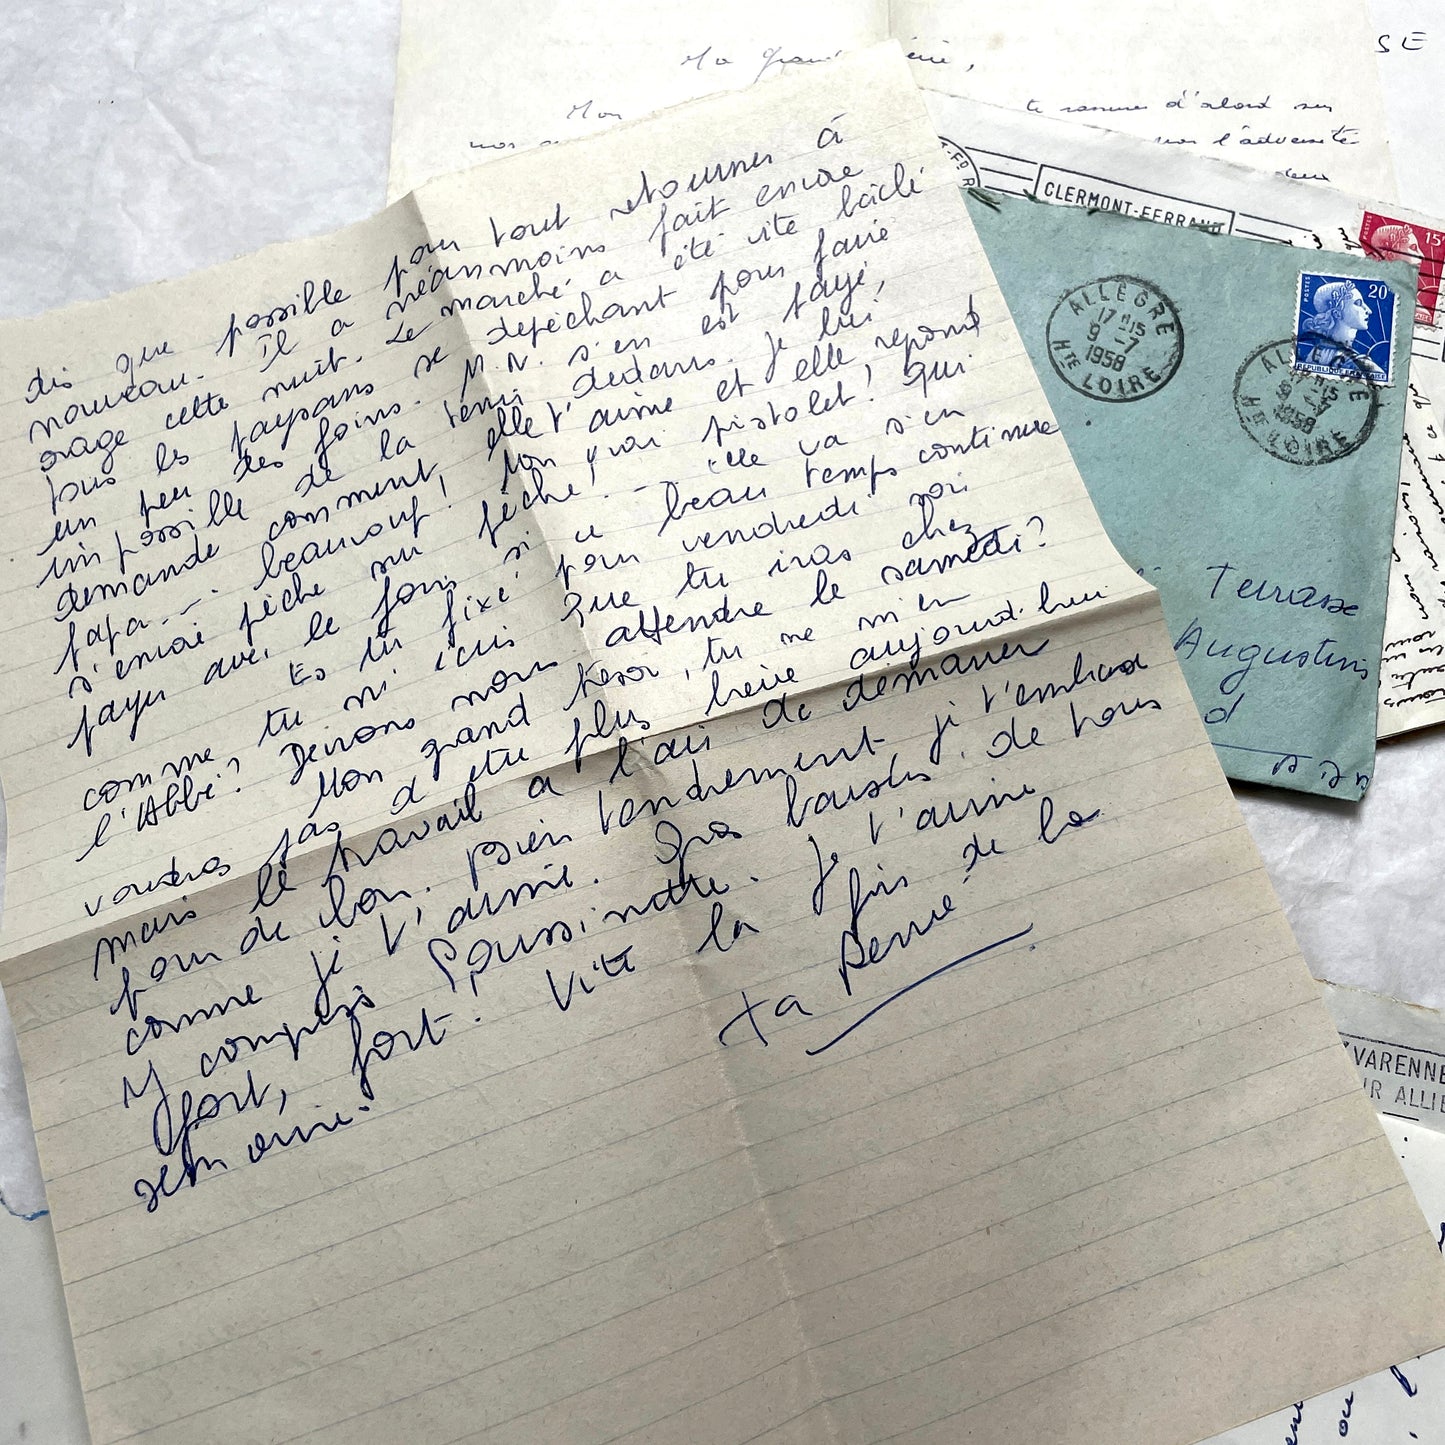 Ma
Mon te rassure d'abord sur
l'adversité
SE
dès que possible pour tout retourner à
nouveau. Il a néanmoins fait encore
orage cette nuit. Le marché a été vite bâclé
tous les paysans se dépêchant pour faire
un peu des foins. M.N. s'en est payé,
impossible de la tenir dedans. Je lui
demande comment elle t'aime et elle répond
papa... beaucoup! Mon vrai pistolet! qui
s'envoie pêche sur pêche! - elle va s'en
payer avec le foin si ce beau temps continue
Es tu fixé pour vendredi soir
comme, tu m'écris que tu iras chez
l'Abbé? Devrons nous attendre le samedi?
Mon grand trésor, tu ne m'en
voudras pas d'être plus brève aujourd'hui
mais le travail a l'air de démarrer
pour de bon. Bien tendrement je t'embrasse
comme je t'aime. Gros baisers de nous
y compris Poussinette. Je t'aime
fort, fort! Vite la fin de la
semaine.
ta
CLERMONT-FERRAND
ALLÈGRE
17H15
9 -7
1958
HTE LOIRE
POSTES
20F
REPUBLIQUE FRANÇAISE
1958
HTE LOIRE
POSTES
15F
Terrasse
Augustins
d
VARENNE
UR ALLIE